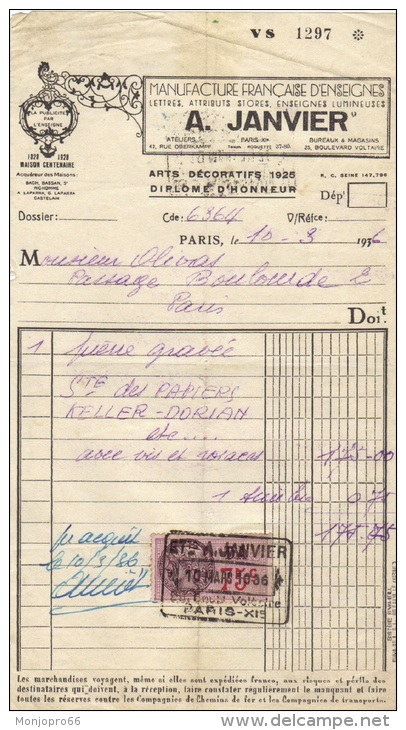 VS 1297 *
MANUFACTURE FRANÇAISE D'ENSEIGNES
LETTRES, ATTRIBUTS STORES, ENSEIGNES LUMINEUSES
A. JANVIER
ATELIERS
47, RUE OBERKAMPF
PARIS-XIe
BUREAUX & MAGASINS
25, BOULEVARD VOLTAIRE
LA PUBLICITÉ
PAR
L'ENSEIGNE
1828 1928
MAISON CENTENAIRE
Acquéreur des Maisons
CASTELAIN
ARTS DÉCORATIFS 1925
DIPLOME D'HONNEUR
R. C. SEINE 147.796
Dépt
Dossier:
Cde: 6364
V/Réfce:
PARIS, le 10-3 1936
Monsieur Olivas
Passage
Paris
Doit
1 gravée
Sté des PAPIERS
KELLER-DORIAN
etc....
avec vis et rosaces 175-00
1 0.75
175-75
Pr acquit
le 10/3/36
Ets A. JANVIER
10 MARS 1936
75c
25, Bould Voltaire
PARIS-XIe
Les marchandises voyagent, même si elles sont expédiées franco, aux risques et périls des
destinataires qui doivent, à la réception, faire constater régulièrement le manquant et faire
toutes les réserves contre les Compagnies de Chemins de fer et les Compagnies de transports.
Monjopro66
www.delcampe.net